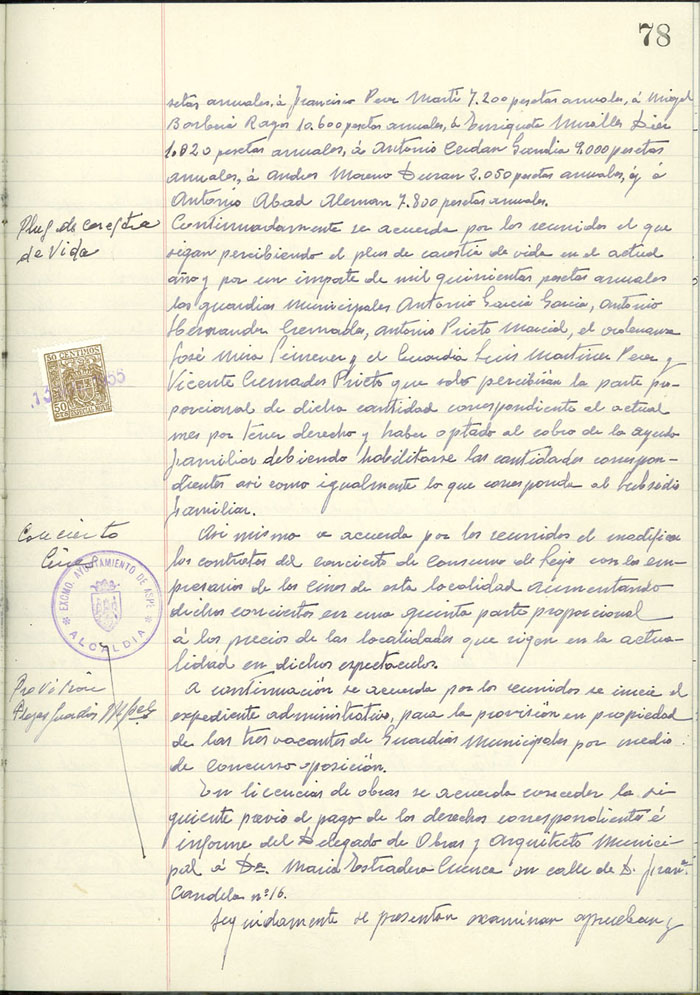 78
setas anuales, á Francisco Perez Martí 7.200 pesetas anuales, á Miguel
Barberá Ragos 10.600 pesetas anuales, á Enriqueta Miralles Dier
1.820 pesetas anuales, á Antonio Cerdan Gandia 9.000 pesetas
anuales, á Andres Moreno Duran 2.050 pesetas anuales, y á
Antonio Abad Aleman 7.800 pesetas anuales.
Plus de carestia
de Vida
Continuadamente se acuerda por los reunidos el que
sigan percibiendo el plus de carestia de vida en el actual
año y por un importe de mil quinientas pesetas anuales
los guardias municipales Antonio Garcia Garcia, Antonio
Hernandez Cremades, Antonio Prieto Marcial, el ordenanza
José Mira Gimenez y el Guardia Luis Martinez Perez y
Vicente Cremades Prieto que solo percibirán la parte pro-
porcional de dicha cantidad correspondiente al actual
mes por tener derecho y haber optado al cobro de la ayuda
familiar debiendo habilitarse las cantidades correspon-
dientes asi como igualmente lo que corresponda al Subsidio
familiar.
50 CENTIMOS
50
ESPECIAL MOVIL
13 55
Concierto
Cines
EXCMO. AYUNTAMIENTO DE ASPE
ALCALDIA
Asi mismo se acuerda por los reunidos el modificar
los contratos del concierto de consumo de lujo con los em-
presarios de los cines de esta localidad aumentando
dichos conciertos en una quinta parte proporcional
á los precios de las localidades que rigen en la actua-
lidad en dichos espectaculos.
Provisión
Plazas Guardias Mpales
A continuación se acuerda por los reunidos se inicie el
expediente administrativo, para la provisión en propiedad
de las tres vacantes de Guardias Municipales por medio
de concurso oposición.
En licencias de obras se acuerda conceder la si-
guiente previo el pago de los derechos correspondientes é
informe del Delegado de Obras y Arquitecto Munici-
pal á Dª. Maria Estradera Cuenca en calle de D. Franª
Candelas nº 16.
Seguidamente se presentan examinan aprueban y